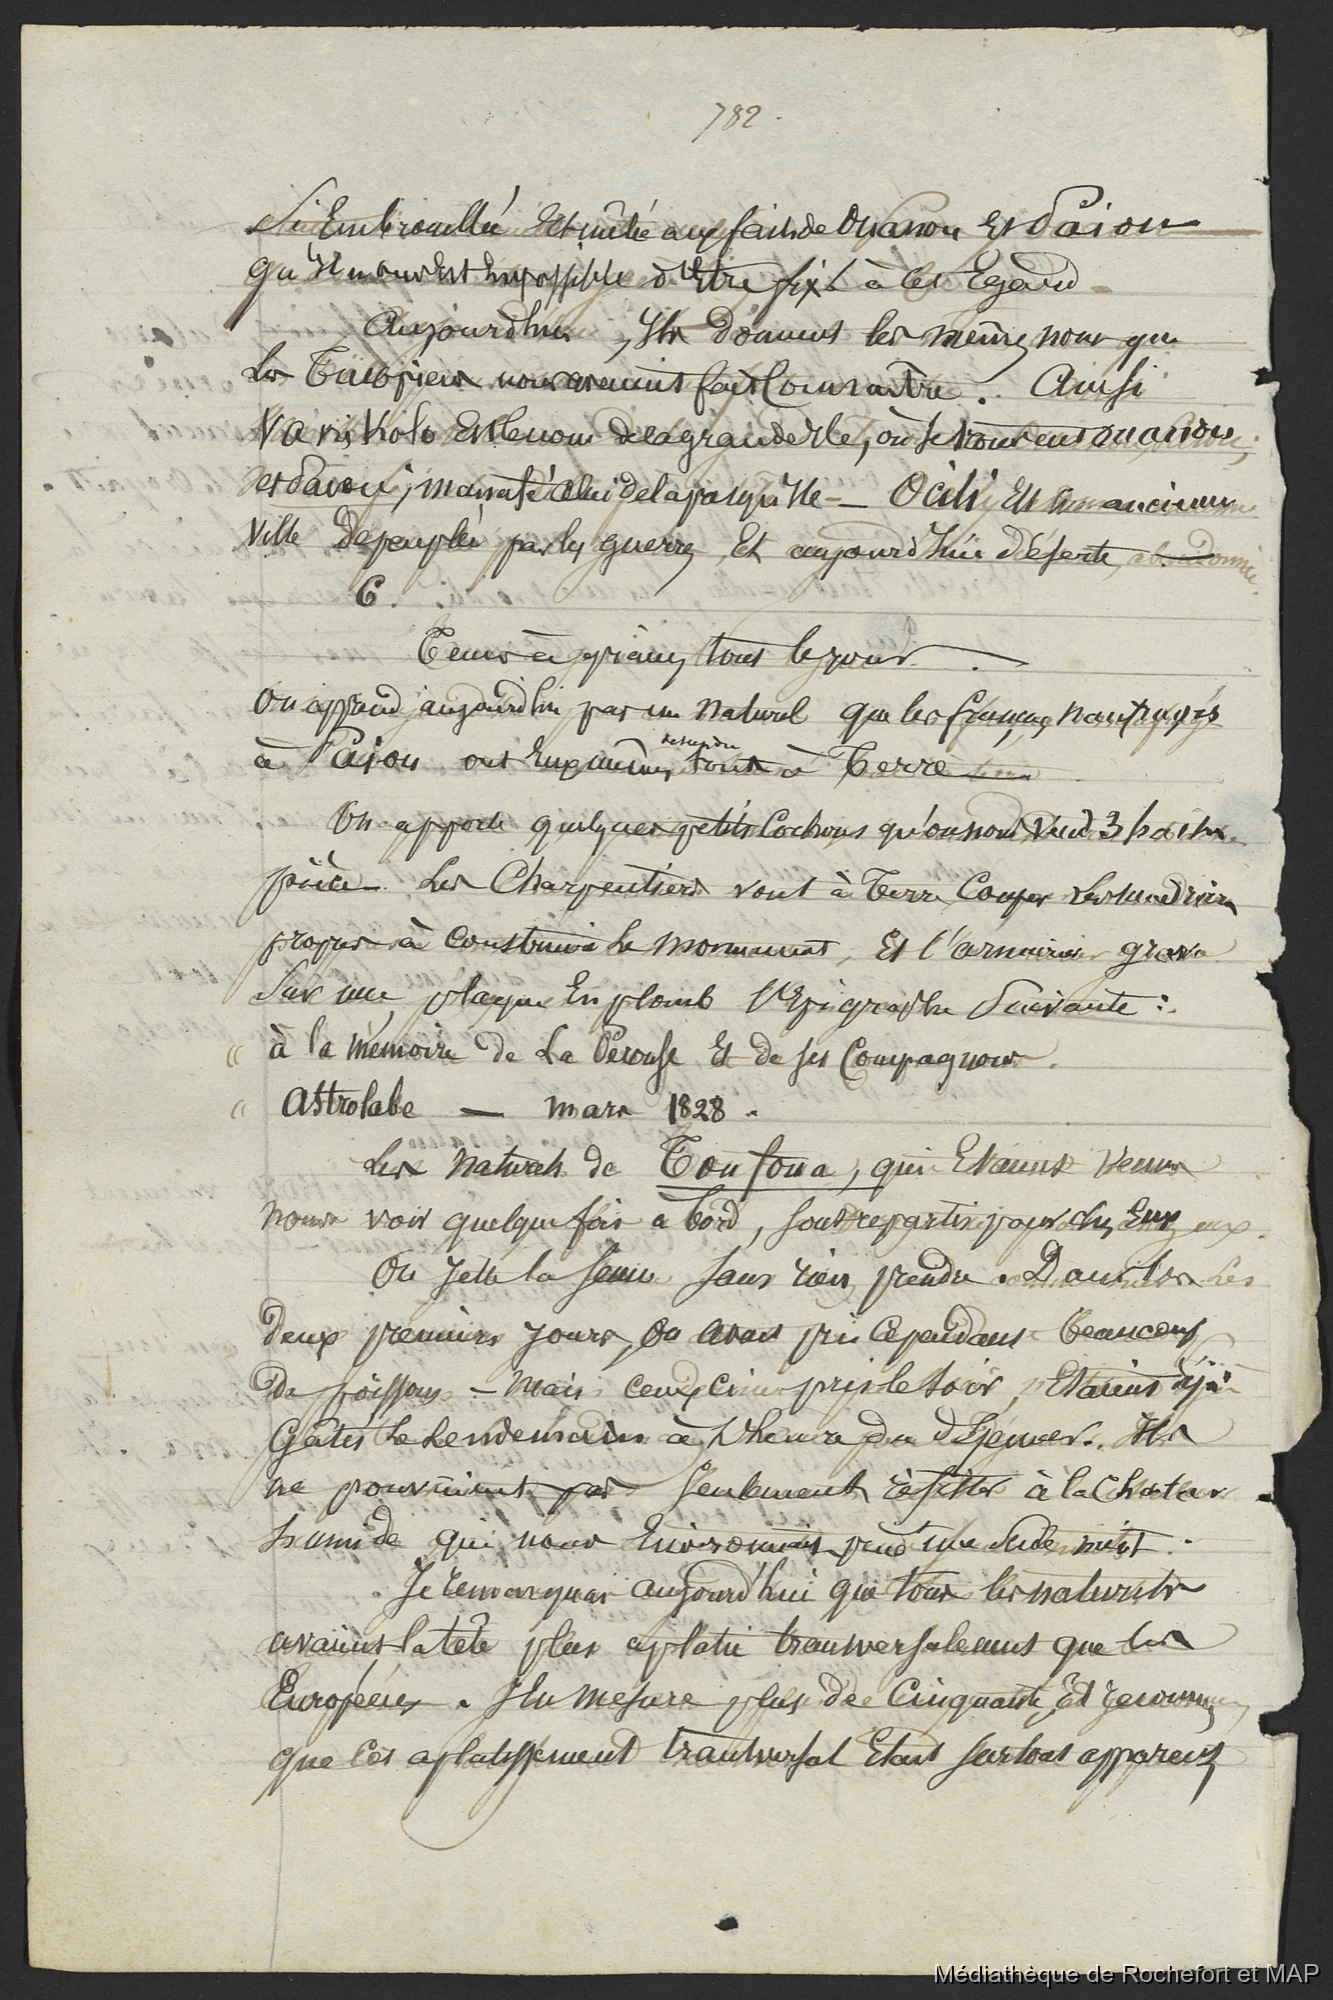 782.
Si Embrouillé Et mêlé aux faits de Ouanou Et Païou
qu'il nous Est Impossible d'Etre fixé à cet Egard
Aujourd'hui, Ils donnent les même noms que
les Tikopiens nous avaient fait Connaître. Ainsi
Vanikolo Est le nom de la grande Ile, où se trouvent ouanou,
celui de la petite Ile - Ocili Est un ancienne
Ville depeuplée par les guerres Et aujourd'hui déserte, abandonnée
6.
Tems à grains tous le jour.
On apprend aujourd'hui par un naturel que les français naufragés
à Païou ont Eux mêmes à Terre
On apporte quelques petits Cochons qu'on nous Vend 3 haches
pièce - Les Charpentiers vont à Terre Couper les madriers
propres à Construire le monument, Et l'armurier grave
Sur une plaque En plomb l'Epigraphe Suivante :
" à la mémoire de La Pérouse Et de ses Compagnons.
" Astrolabe — mars 1828.
Les naturels de Toufoua, qui Etaient Venus
nous voir quelque fois à bord, sont repartis pour chez Eux
On Jette la Senne sans rien prendre. Dans les
deux premiers Jours, On avait pris Cependant beaucoup
de poissons - mais ceux ci pris le soir, Etaient déjà
Gâtés le Lendemain à l'heure du déjeuner. Ils
ne pouvaient pas seulement résister à la Chaleur
humide qui nous Environnait pend^t une Seule nuit.
Je remarquai aujourd'hui que tous les naturels
avaient la tête plus aplatie transversalement que les
Européens. J'En mesure plus de Cinquante, Et reconnus
que cet aplatissement transversal Etait surtout apparent
Médiathèque de Rochefort et MAP